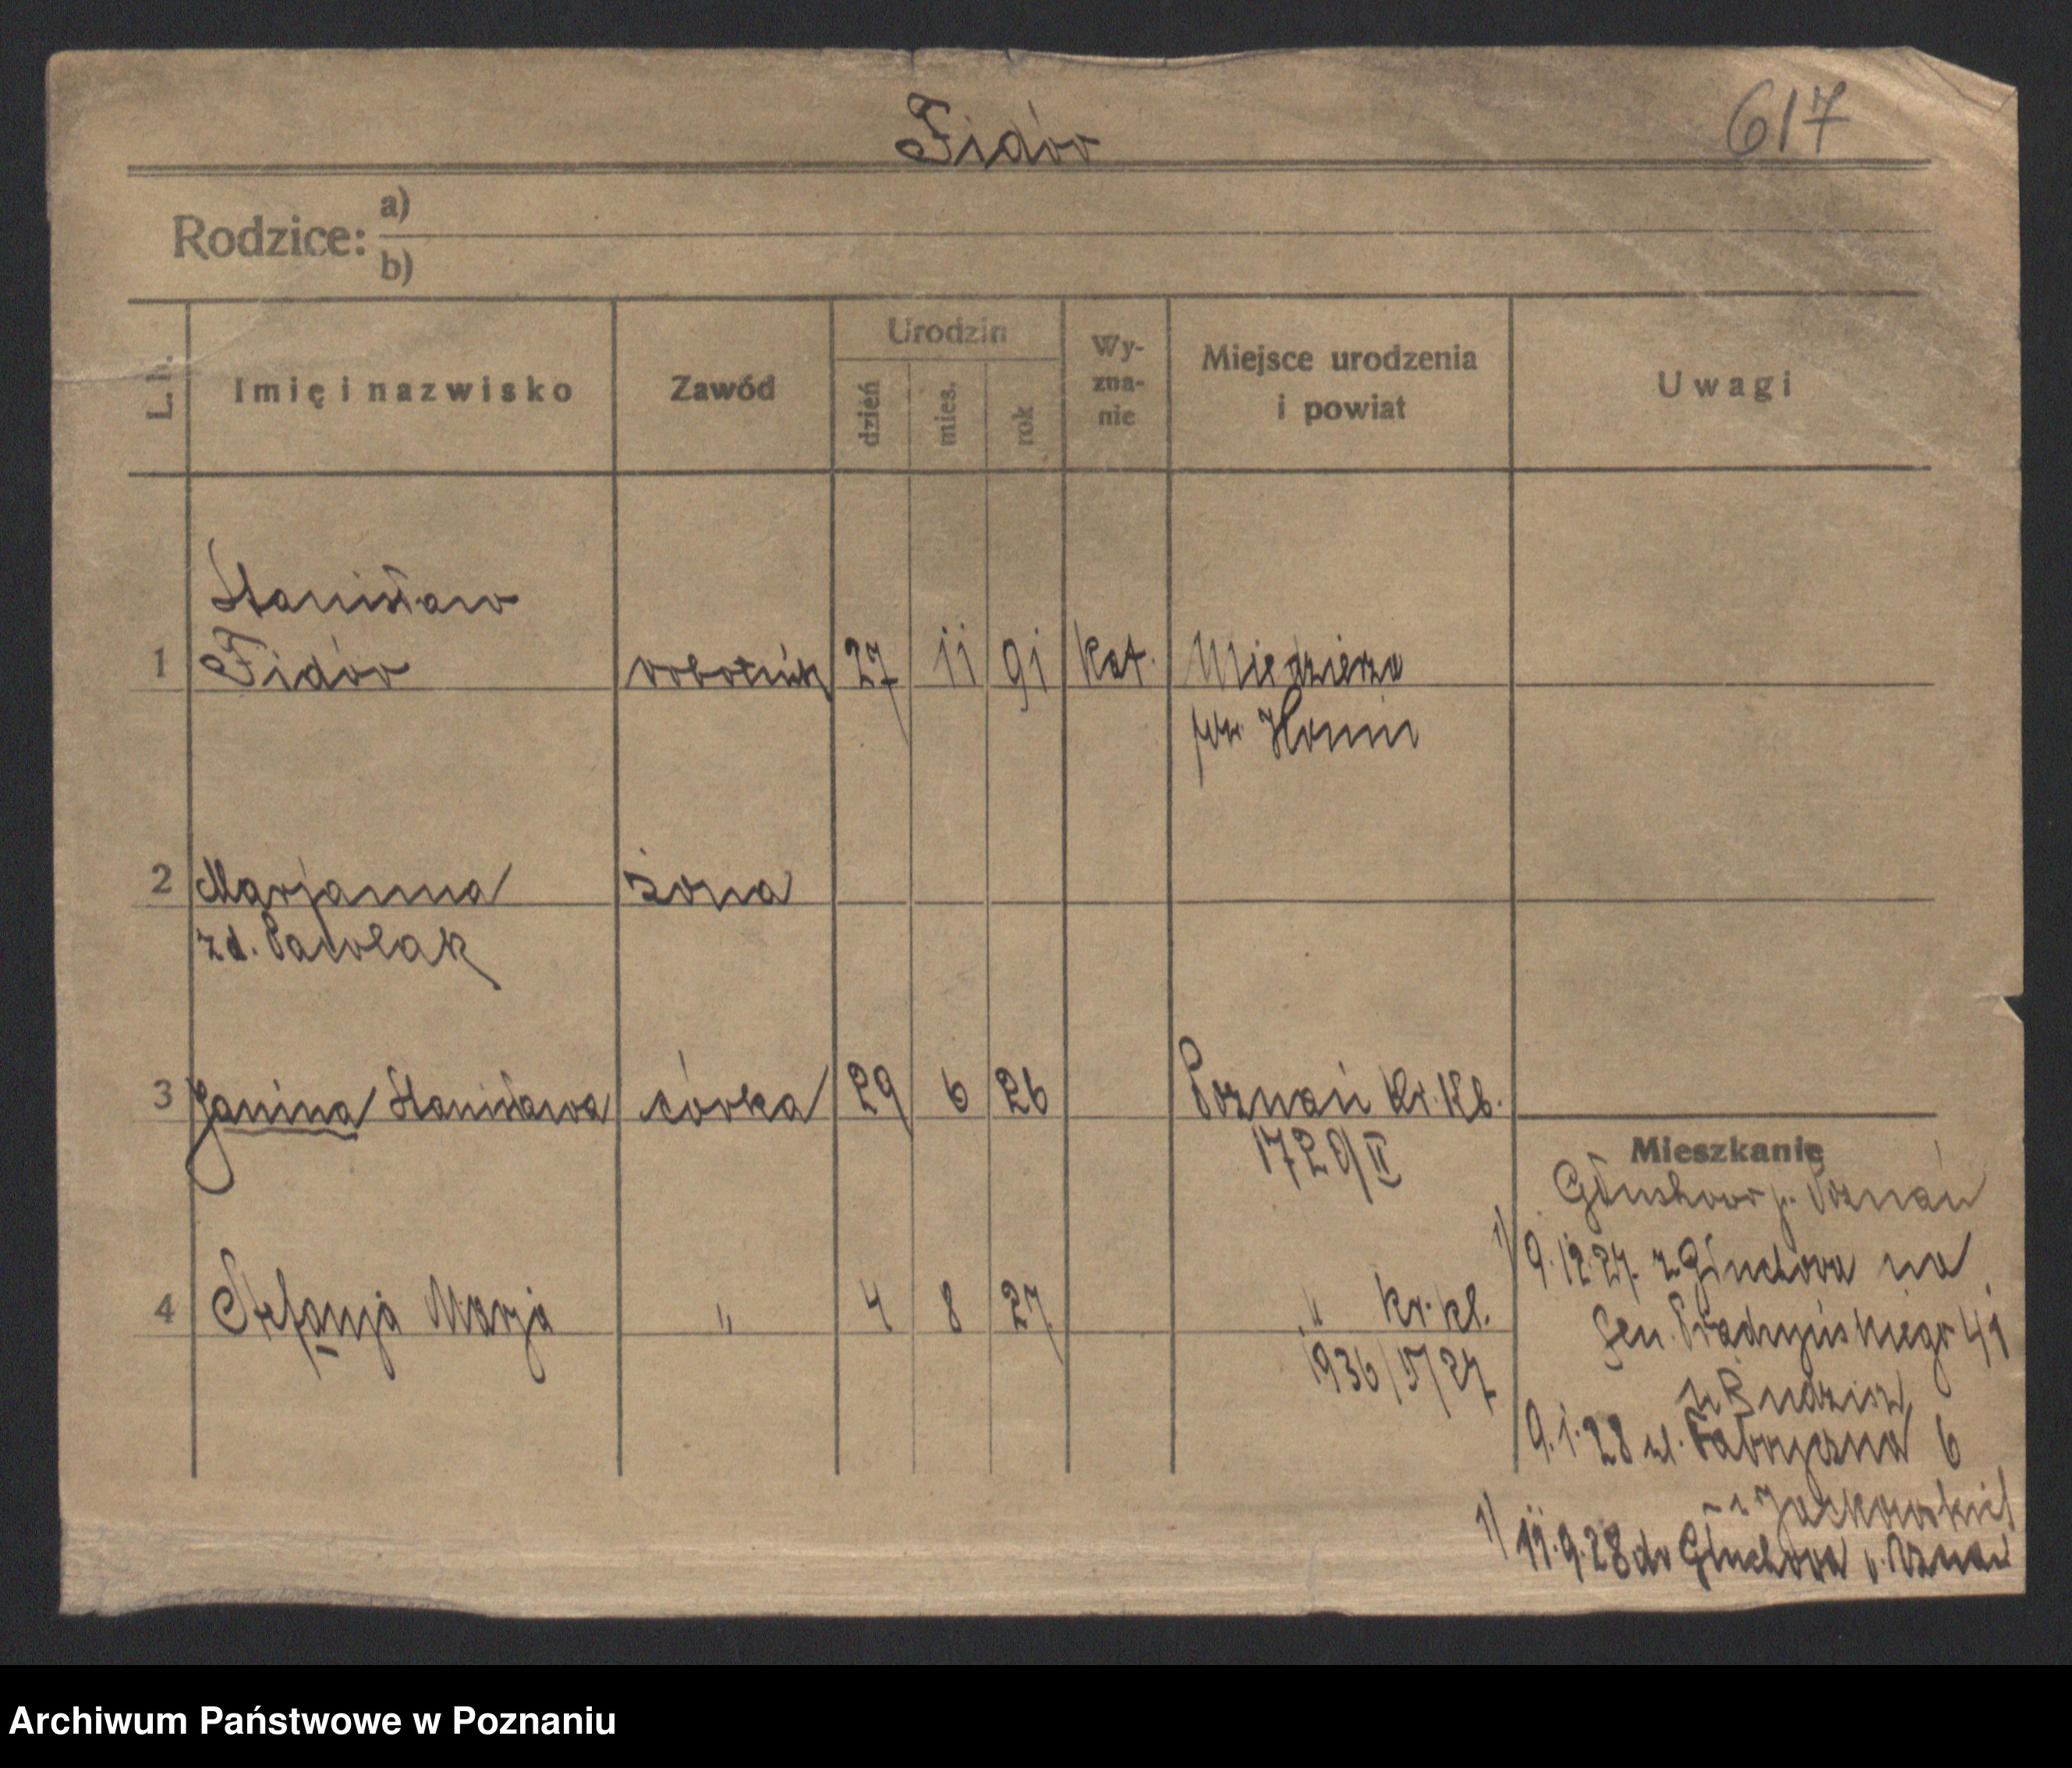 Fidór
617
Rodzice:
a)
b)
L. b.
Imię i nazwisko
Zawód
Urodzin
dzień
mies.
rok
Wy-
zna-
nie
Miejsce urodzenia
i powiat
Uwagi
Stanisław
1 Fidór robotnik 27 11 91 kat. Miedzierza
pow.
2 Marjanna żona
zd. Pawlak
3 Janina Stanisława córka 29 6 26 Poznań kr. kl.
1729/II
4 Stefanja Marja " 4 8 27 " kr. kl.
1936/VI/27
Mieszkanie
p. Poznań
1) 9.12.27. z Głuchowa na
Gen. Prądzyńskiego 41
9.1.28 ul. Fabryczna 6
1) 11.9.28 do Głuchowa p. Poznań
Archiwum Państwowe w Poznaniu